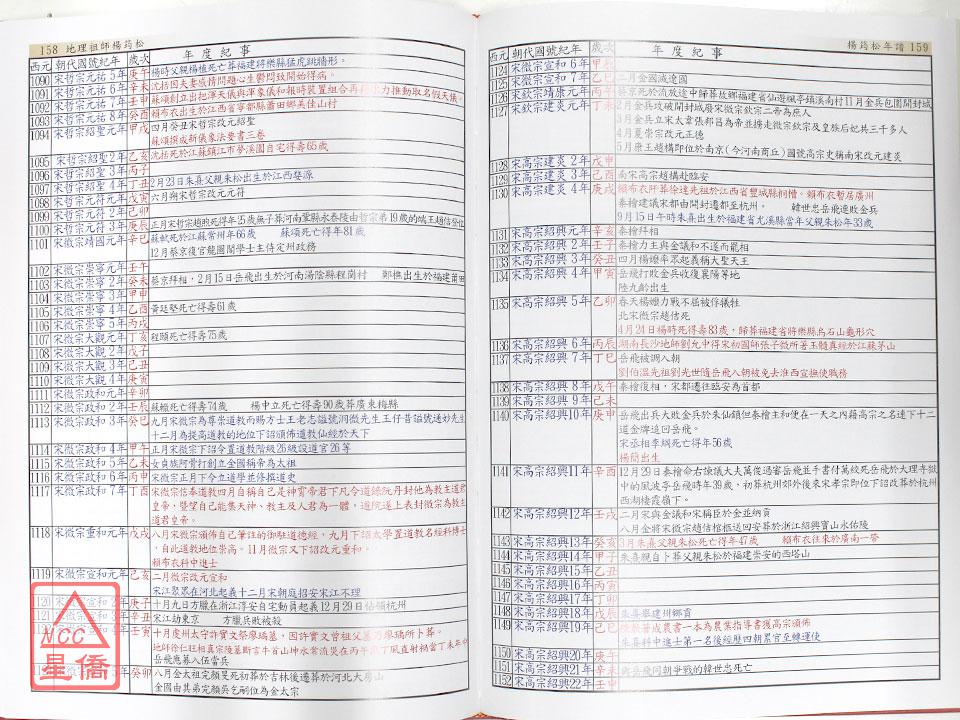 158 地理祖師楊筠松
西元 朝代國號紀年 歲次 年度紀事
1090 宋哲宗元祐 5年 庚午 楊時父親楊植死亡葬福建將樂縣猛虎跳牆形。
1091 宋哲宗元祐 6年 辛未 沈括因夫妻感情問題心生鬱悶致開始得病。
1092 宋哲宗元祐 7年 壬申 蘇頌創立出把渾天儀與渾象儀和報時裝置組合再利用水力推動取名假天儀。
1093 宋哲宗元祐 8年 癸酉 賴布衣出於江西省寧都縣蕭田鄉美佳山村
1094 宋哲宗紹聖元年 甲戌 四月癸丑宋哲宗改元紹聖
蘇頌撰成新儀象法要書三卷
1095 宋哲宗紹聖 2年 乙亥 沈括死於江蘇鎮江市夢溪園自宅得壽65歲
1096 宋哲宗紹聖 3年 丙子
1097 宋哲宗紹聖 4年 丁丑 2月23日朱熹父親朱松出生於江西婺源
1098 宋哲宗元符元年 戊寅 六月朔宋哲宗改元元符
1099 宋哲宗元符 2年 己卯
1100 宋哲宗元符 3年 庚辰 正月宋哲宗趙煦死得年25歲無子葬河南鞏縣永泰陵由哲宗弟19歲的端王趙佶登位
1101 宋徽宗靖國元年 辛巳 蘇軾死於江蘇常州年66歲 蘇頌死亡得年81歲
12月蔡京復官龍圖閣學士主侍定州政務
1102 宋徽宗崇寧元年 壬午
1103 宋徽宗崇寧 2年 癸未 蔡京拜相，2月15日岳飛出生於河南湯陰縣程崗村 鄭樵出生於福建莆田
1104 宋徽宗崇寧 3年 甲申
1105 宋徽宗崇寧 4年 乙酉 黃廷堅死亡得壽61歲
1106 宋徽宗崇寧 5年 丙戌
1107 宋徽宗大觀元年 丁亥 程頤死亡得壽75歲
1108 宋徽宗大觀 2年 戊子
1109 宋徽宗大觀 3年 己丑
1110 宋徽宗大觀 4年 庚寅
1111 宋徽宗政和元年 辛卯
1112 宋徽宗政和 2年 壬辰 蘇轍死亡得壽74歲 楊中立死亡得壽90歲葬廣東梅縣
1113 宋徽宗政和 3年 癸巳 九月宋徽宗為尊崇道教而賜方士王老志謚號洞微先生王仔昔謚號通妙先生
十二月為提高道教的地位下詔頒佈道教仙經於天下
1114 宋徽宗政和 4年 甲午 正月宋徽宗下詔令置道教階級26級設道官26等
1115 宋徽宗政和 5年 乙未 女貞族阿骨打創立金國稱帝為太祖
1116 宋徽宗政和 6年 丙申 宋徽宗正月下令立道學並修撰道史
1117 宋徽宗政和 7年 丁酉 宋徽宗信奉道教四月自稱自己是神霄帝君下凡令道籙阮丹封他為教主道君
皇帝，聲望自己能集天神、教主及人君為一體，道院遂上表封徽宗為教主
道君皇帝。
1118 宋徽宗重和元年 戊戌 八月宋徽宗頒佈自己筆註的御駐道德經，九月下詔太學置道教名經科博士
，自此道教地位崇高。11月徽宗又下詔改元重和。
賴布衣科中進士
1119 宋徽宗宣和元年 己亥 二月徽宗改元宣和
宋江聚眾在河北起義十二月宋朝庭招安宋江不理
1120 宋徽宗宣和 2年 庚子 十月九日方臘在浙江淳安自宅動員起義12月29日佔領杭州
1121 3年 辛丑 宋江劫東京 方臘兵敗被殺
壬寅 十月虔州太守許實文祭廖瑀墓，因許實文曾祖父墓乃廖瑀所卜葬。
岳飛應募入伍當兵
癸卯 八月金太祖完顏旻死初葬於吉林後遷葬於河北大房山
金國由其弟完顏吳乞嗣位為金太宗
楊筠松年譜 159
西元 朝代國號紀年 歲次 年度紀事
1124 宋徽宗宣和 6年 甲辰
1125 宋徽宗宣和 7年 乙巳 二月金國滅遼國
1126 宋欽宗靖康元年 丙午 蔡京死於流放途中歸葬故鄉福建省仙遊楓亭鎮溪南村11月金兵包圍開封城
1127 宋欽宗建炎元年 丁未 2月金兵攻破開封城廢宋徽宗欽宗二帝為庶人
3月金兵立宋太宰張邦昌為帝並擄走徽宗欽宗及皇族后妃共三千多人
4月夏崇宗改元正德
5月康王趙構即位於南京(今河南商丘)國號高宗史稱南宋改元建炎
1128 宋高宗建炎 2年 戊申
1129 宋高宗建炎 3年 己酉 南宋高宗趙構赴臨安
1130 宋高宗建炎 4年 庚戌 賴布衣肝葬徐達先祖於江西省豐城縣銅槽。賴布衣暫居廣州
秦檜建議宋都由開封遷都至杭州。 韓世忠岳飛連敗金兵
9月15日午時朱熹出生於福建省尤溪縣當年父親朱松年33歲
1131 宋高宗紹興元年 辛亥 秦檜拜相
1132 宋高宗紹興 2年 壬子 秦檜力主與金議和不遂而罷相
1133 宋高宗紹興 3年 癸丑 四月楊嫽率眾起義稱大聖天王
1134 宋高宗紹興 4年 甲寅 岳飛打敗金兵收復襄陽等地
陸九齡出生
1135 宋高宗紹興 5年 乙卯 春天楊嫽力戰不屈被俘犧牲
北宋徽宗趙佶死
4月24日楊時死得壽83歲，歸葬福建省將樂縣烏石山龜形穴
1136 宋高宗紹興 6年 丙辰 湖南長沙地師劉允中得宋初國師張子微所著玉髓真經於江蘇茅山
1137 宋高宗紹興 7年 丁巳 岳飛被調入朝
劉伯溫先祖劉光世隨岳飛入朝被免去淮西宣撫使職務
1138 宋高宗紹興 8年 戊午 秦檜復相，宋都遷往臨安為首都
1139 宋高宗紹興 9年 己未
1140 宋高宗紹興10年 庚申 岳飛出兵大敗金兵於朱仙鎮但秦檜主和便在一天之內藉高宗之名連下十二
道金牌追回岳飛。
宋丞相李綱死亡得年56歲
楊簡出生
1141 宋高宗紹興11年 辛酉 12月29日秦檜命右諫議大夫萬俟過審岳飛並手書付萬俟死岳飛於大理寺獄
中的風波亭岳飛時年39歲，初葬杭州郊外後來宋孝宗即位下詔改葬於杭州
西湖棲霞嶺下。
1142 宋高宗紹興12年 壬戌 二月宋與金議和宋稱臣於金並納貢
八月金將宋徽宗趙佶棺柩送回安葬於浙江紹興寶山永佑陵
1143 宋高宗紹興13年 癸亥 3月朱熹父親朱松死亡得年47歲 賴布衣往來於廣南一帶
1144 宋高宗紹興14年 甲子 朱熹親自卜葬父親朱松於福建崇安的西塔山
1145 宋高宗紹興15年 乙丑
1146 宋高宗紹興16年 丙寅
1147 宋高宗紹興17年 丁卯
1148 宋高宗紹興18年 戊辰 朱熹舉建州鄉貢
1149 宋高宗紹興19年 己巳 農書一本為農業指導書獲高宗頒佈
朱熹科中進士第一名後經歷四朝累官至轉運使
1150 宋高宗紹興20年 庚午
1151 宋高宗紹興21年 辛未 與岳飛同朝爭戰的韓世忠死亡
1152 宋高宗紹興22年 壬申
NCC
星僑